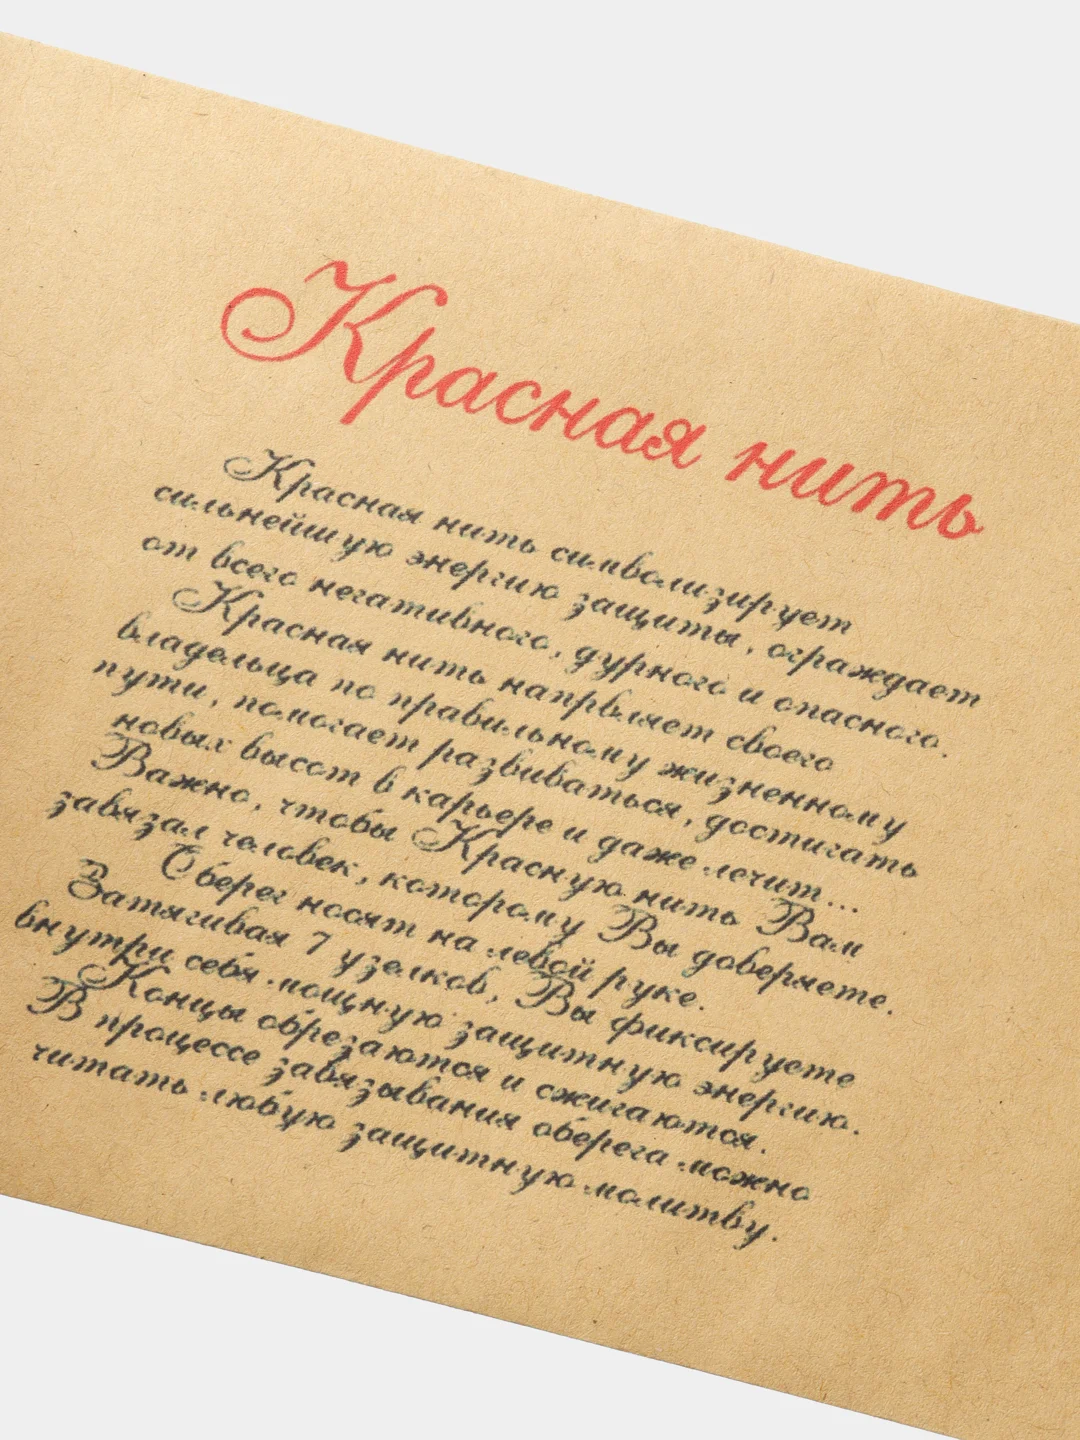 Красная нить
Красная нить символизирует
сильнейшую энергию защиты, ограждает
от всего негативного, дурного и опасного.
Красная нить напрвляет своего
владельца по правильному жизненному
пути, помогает развиваться, достигать
новых высот в карьере и даже лечит...
Важно, чтобы Красную нить Вам
завязал человек, которому Вы доверяете.
Оберег носят на левой руке.
Затягивая 7 узелков, Вы фиксируете
внутри себя мощную защитную энергию.
Концы обрезаются и сжигаются.
В процессе завязывания оберега можно
читать любую защитную молитву.